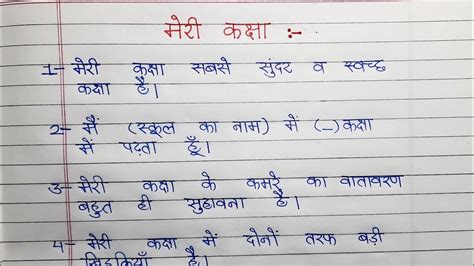 मेरी कक्षा :-
1- मेरी कक्षा सबसे सुंदर व स्वच्छ
कक्षा है।
2- मैं (स्कूल का नाम) में (-) कक्षा
में पढ़ता हूँ।
3- मेरी कक्षा के कमरे का वातावरण
बहुत ही सुहावना है।
4- मेरी कक्षा में दोनों तरफ बड़ी
खिड़कियाँ है।